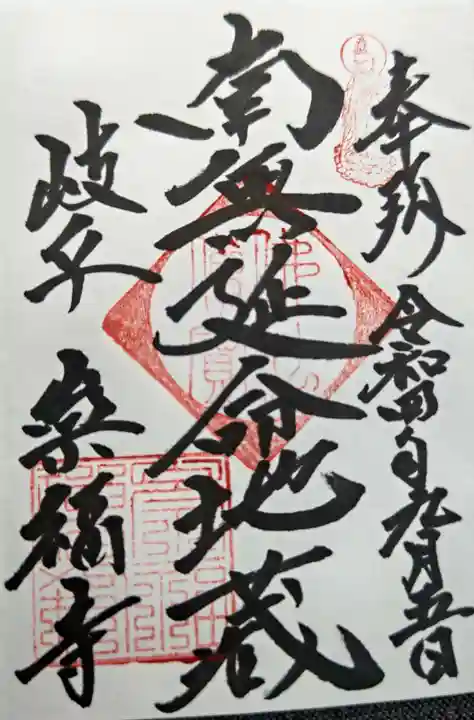 奉拝 令和四年九月五日
南無延命地蔵
岐阜 楽福寺